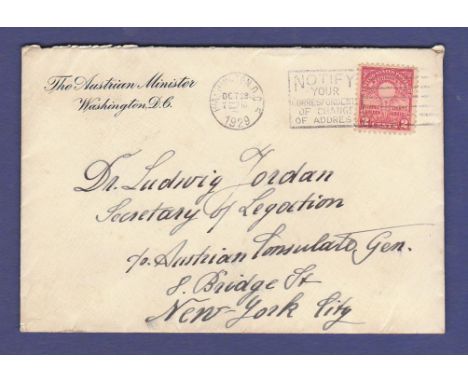 The Austrian Minister
Washington, D.C.
WASHINGTON, D.C.
OCT 28
1929
NOTIFY
YOUR
CORRESPONDENTS
OF CHANGE
OF ADDRESS
2
Dr. Ludwig Jordan
Secretary of Legation
c/o Austrian Consulate Gen.
8. Bridge St
New-York City